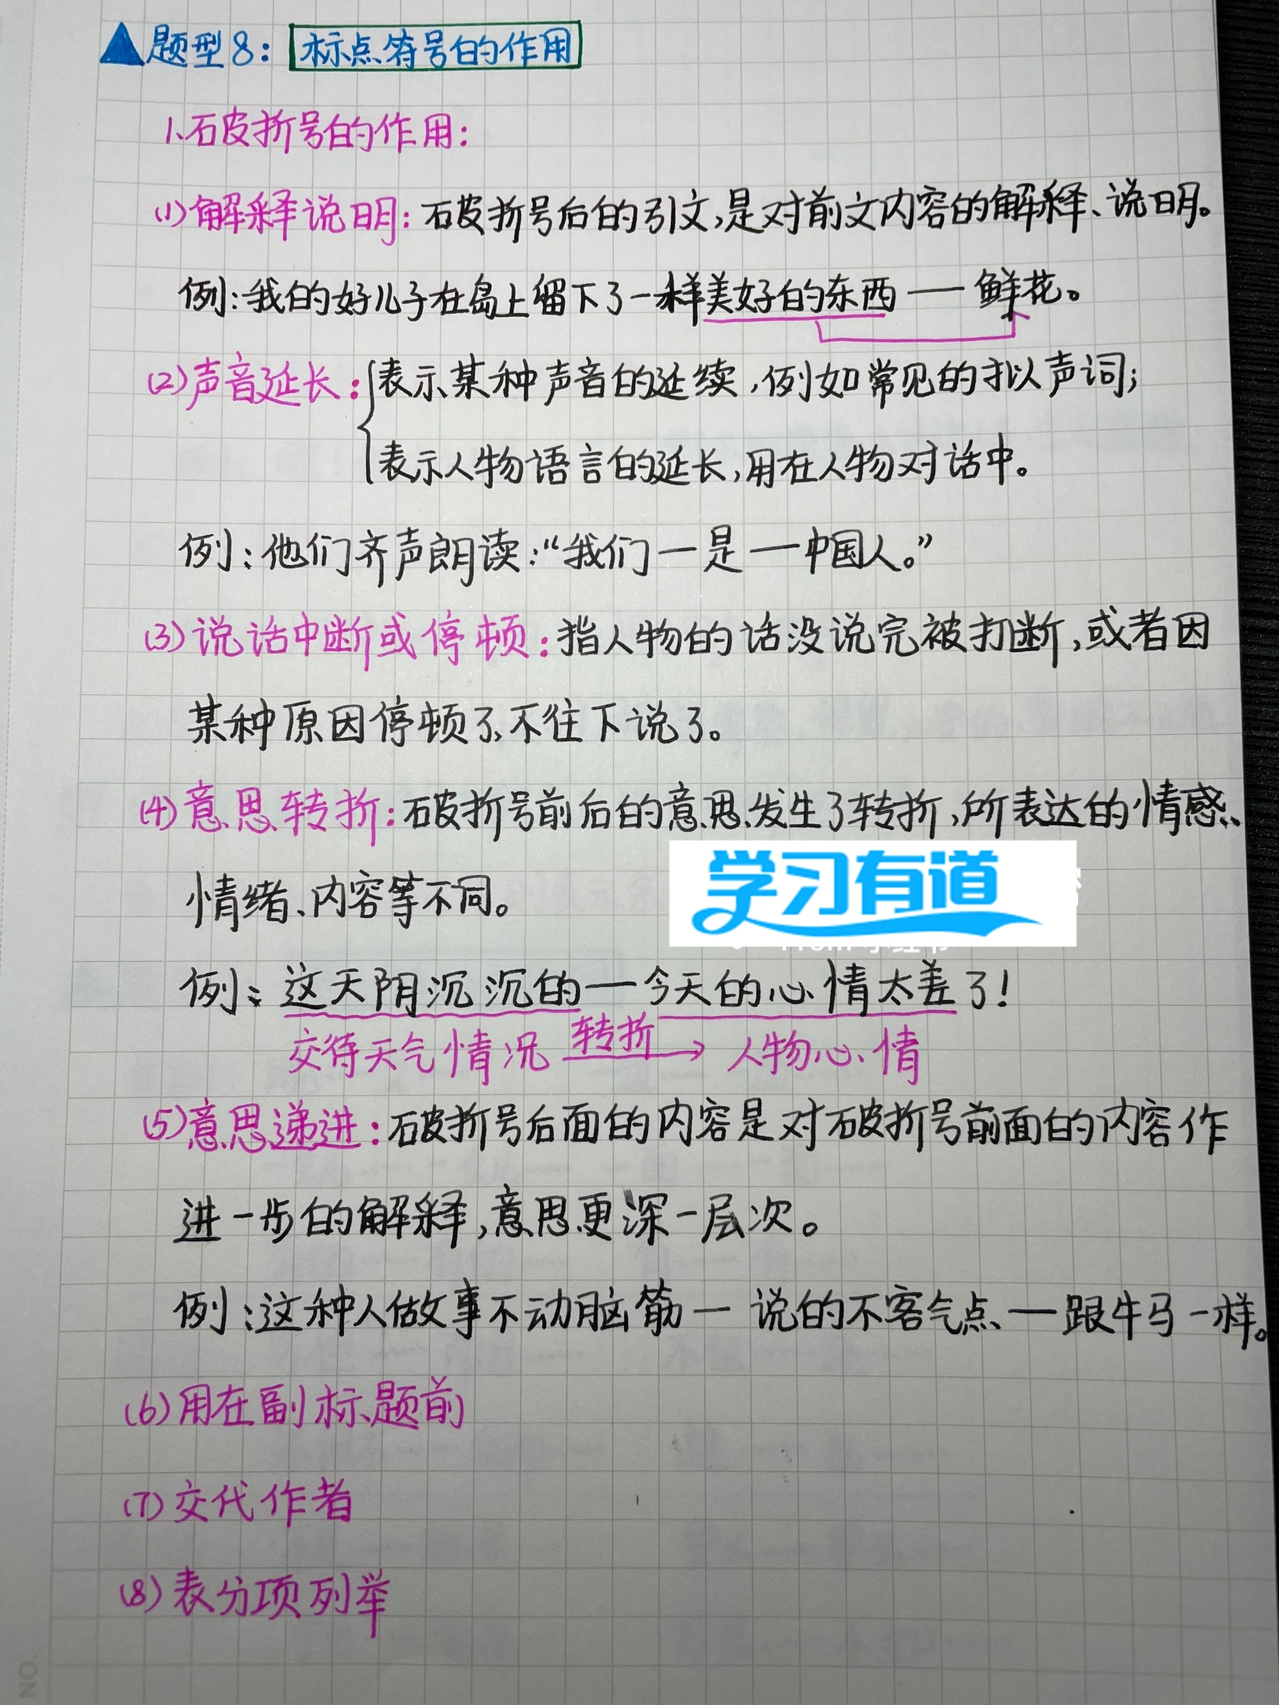 ▲题型8：标点符号的作用
1、破折号的作用：
(1)解释说明：破折号后的引文，是对前文内容的解释、说明。
例：我的好儿子在岛上留下了一样美好的东西——鲜花。
(2)声音延长：表示某种声音的延续，例如常见的拟声词；
表示人物语言的延长，用在人物对话中。
例：他们齐声朗读：“我们—是—中国人。”
(3)说话中断或停顿：指人物的话没说完被打断，或者因
某种原因停顿了、不往下说了。
(4)意思转折：破折号前后的意思发生了转折，所表达的情感、
情绪、内容等不同。
学习有道
例：这天阴沉沉的——今天的心情太差了！
交待天气情况 转折→ 人物心情
(5)意思递进：破折号后面的内容是对破折号前面的内容作
进一步的解释，意思更深一层次。
例：这种人做事不动脑筋— 说的不客气点—跟牛马一样。
(6)用在副标题前
(7)交代作者
(8)表分项列举
NO.